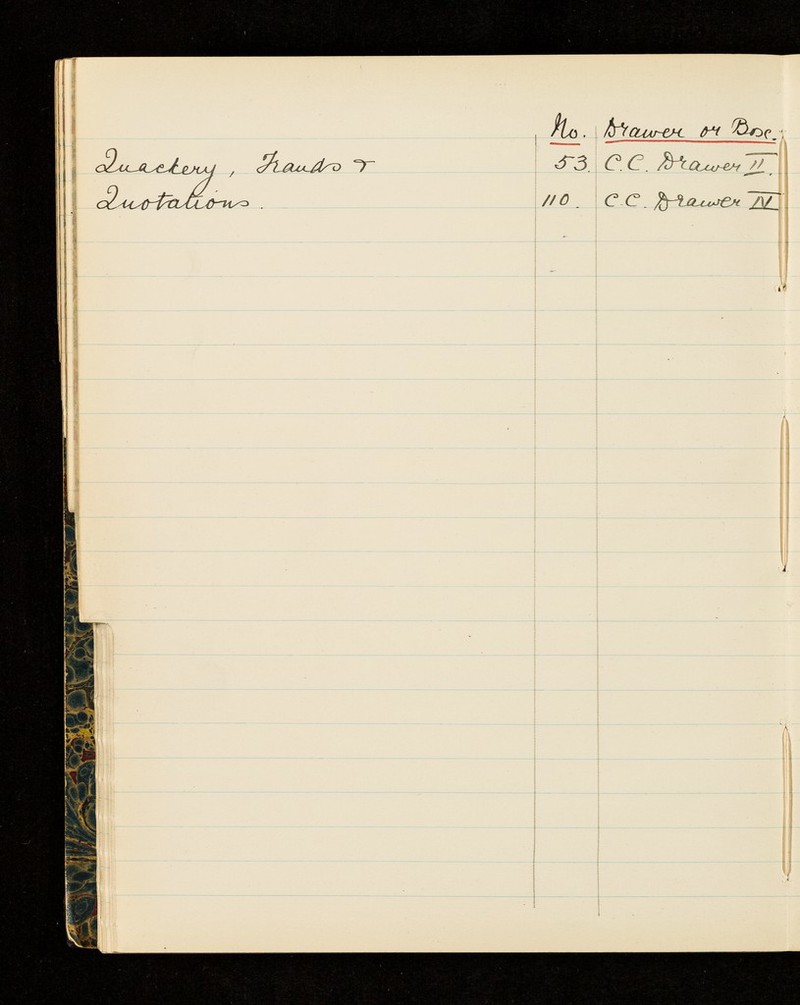 No. Drawer or Box.
Quackery, Frauds & 53. C.C. Drawer II.
Quotations. 110. C.C. Drawer IV